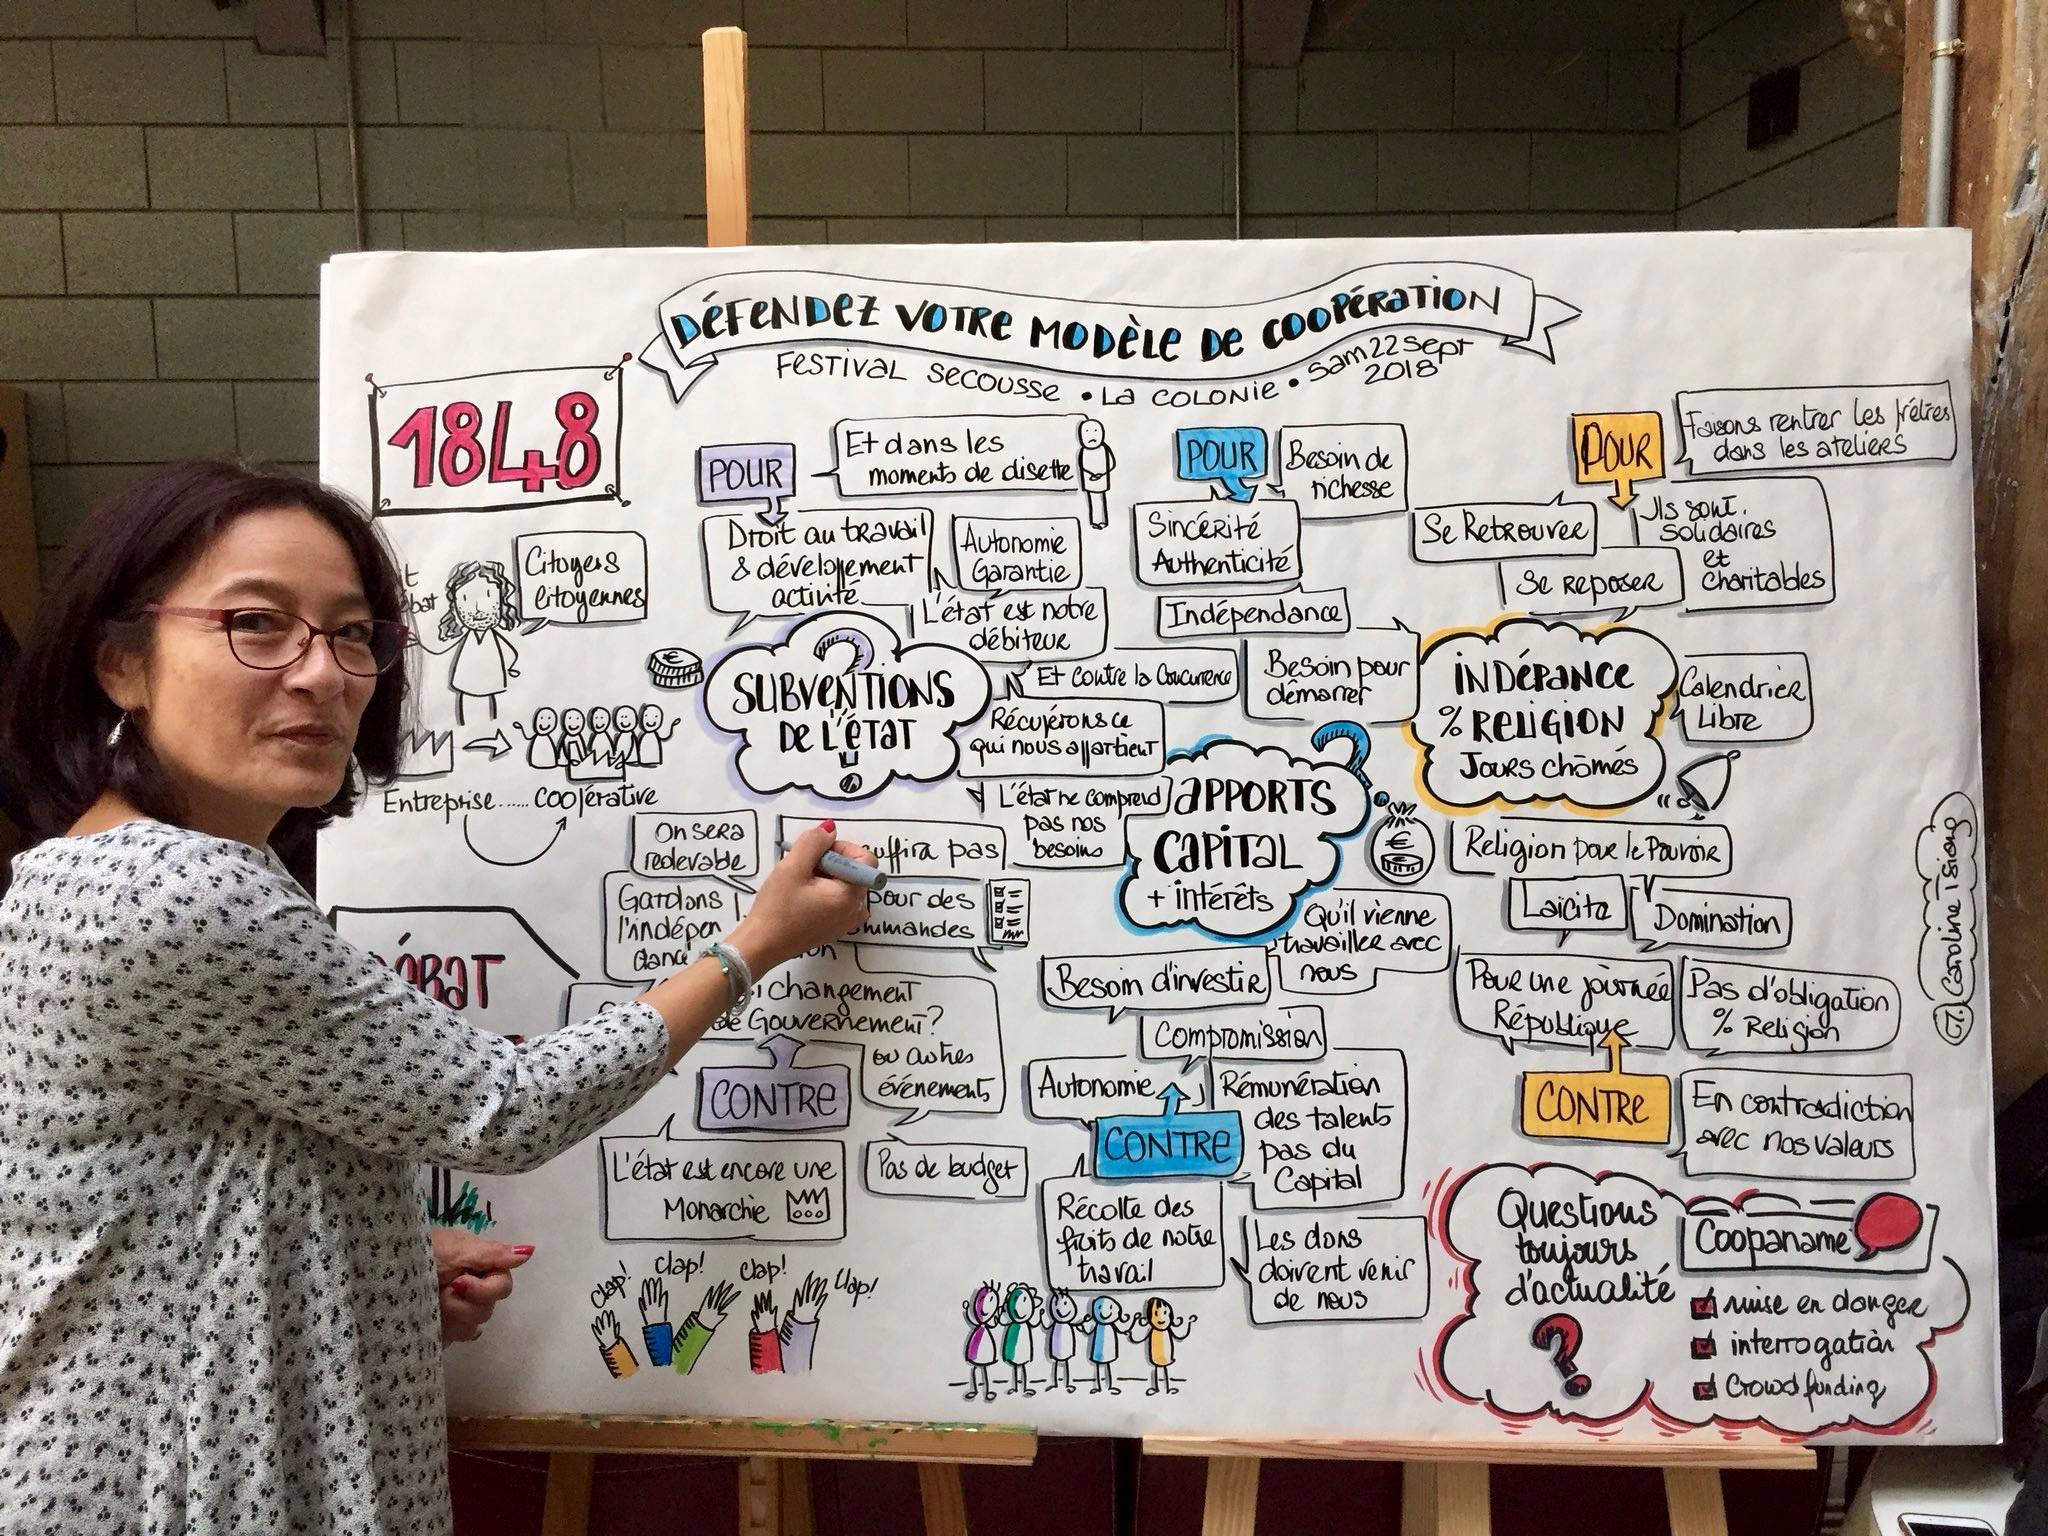 DÉFENDEZ VOTRE MODÈLE DE COOPÉRATION
FESTIVAL SECOUSSE • LA COLONIE • Sam 22 Sept
2018
1848
Citoyens
Citoyennes
Entreprise ...... Coopérative
DÉBAT
POUR
Et dans les
moments de disette
Droit au travail
& développement
activité
Autonomie
Garantie
L'état est notre
débiteur
Et contre la Concurrence
Récupérons ce
qui nous appartient
L'état ne comprend
pas nos
besoins
?
SUBVENTIONS
DE L'ÉTAT
€
On sera
redevable
uffira pas
Gardons
l'indépen
dance
pour des
mmandes
changement
de Gouvernement?
ou autres
événements
CONTRE
L'état est encore une
Monarchie
Pas de budget
Clap!
Clap!
Clap!
Clap!
POUR
Besoin de
richesse
Sincérité
Authenticité
Indépendance
Besoin pour
démarrer
?
APPORTS
CAPITAL
+ intérêts
€
Qu'il vienne
travailler avec
nous
Besoin d'investir
Compromission
Autonomie
Rémunération
des talents
pas du
Capital
CONTRE
Récolte des
fruits de notre
travail
Les dons
doivent venir
de nous
POUR
Faisons rentrer les prêtres
dans les ateliers
Se Retrouver
Ils sont
solidaires
et
charitables
Se reposer
INDÉPANCE
% RELIGION
Jours chômés
Calendrier
Libre
Religion pour le Pouvoir
Laicité
Domination
Pour une journée
République
Pas d'obligation
% Religion
CONTRE
En contradiction
avec nos valeurs
Questions
toujours
d'actualité
?
Coopaname
mise en danger
interrogation
Crowdfunding